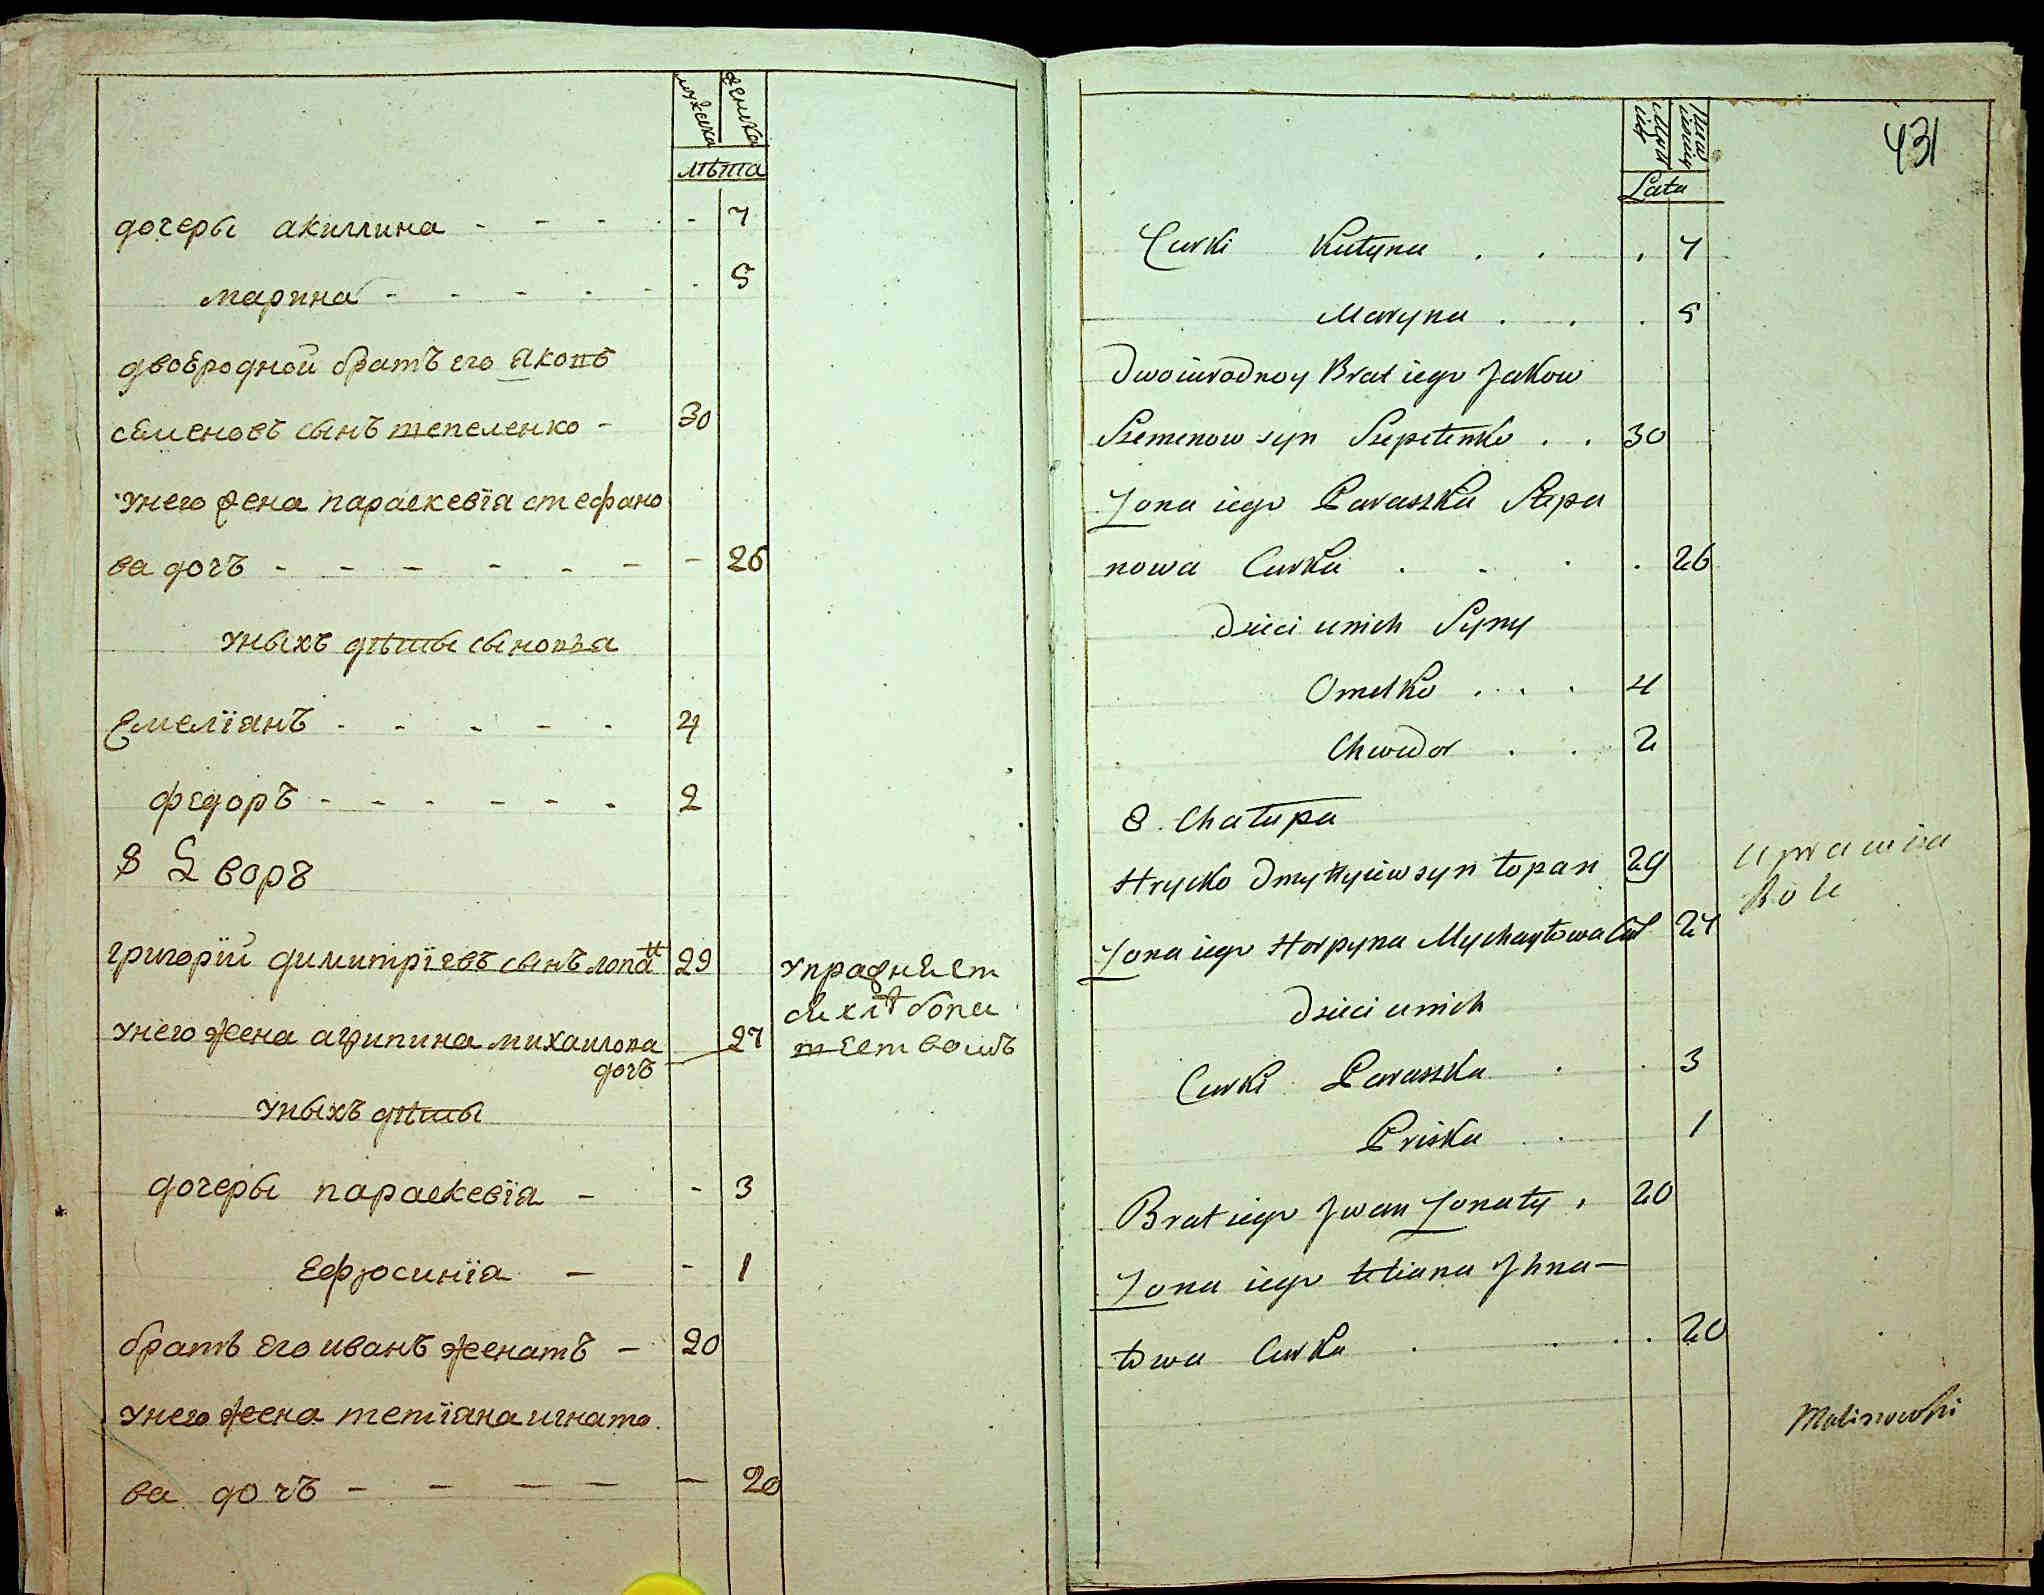 мужска женска
лѣта
дочеры акилина - - - - 7
марина - - - - - - 5
двоеродной братъ его яковъ
семеновъ сынъ тепеленко - 30
унего жена параскевїя стефано
ва дочъ - - - - - - - 26
уныхъ дѣты сыновья
Емелїянъ - - - - - 4
федоръ - - - - - - 2
8 Дворъ
григорїй димитрїевъ сынъ лопан 29
унего жена агрипина михаилова 27
дочъ
упражняет
ся хлѣбопа
шествомъ
уныхъ дѣты
дочеры параскевїя - - 3
ефросинїя - - 1
братъ его иванъ женатъ - 20
унего жена тетїяна игнато
ва дочъ - - - - - 20
431
Lata
Curki Kulyna . . . 7
Maryna . . . 5
Dwoiurodnoy Brat iego Jakow
Szemenow syn Szepelenko . . 30
Żona iego Paraszka Stepa
nowa Curka . . . . 26
Dzieci u nich Syny
Omelko . . . . 4
Chwedor . . 2
8. Chałupa
Hrycko Dmytryiew syn Łopan 29
uprawia
Role
Żona iego Horpyna Mychayłowa Cur 27
Dzieci u nich
Curki Paraszka . . 3
Priska . . 1
Brat iego Jwan Żonaty . 20
Żona iego tetiana Jhna-
towa Curka . . . . 20
Malinowski